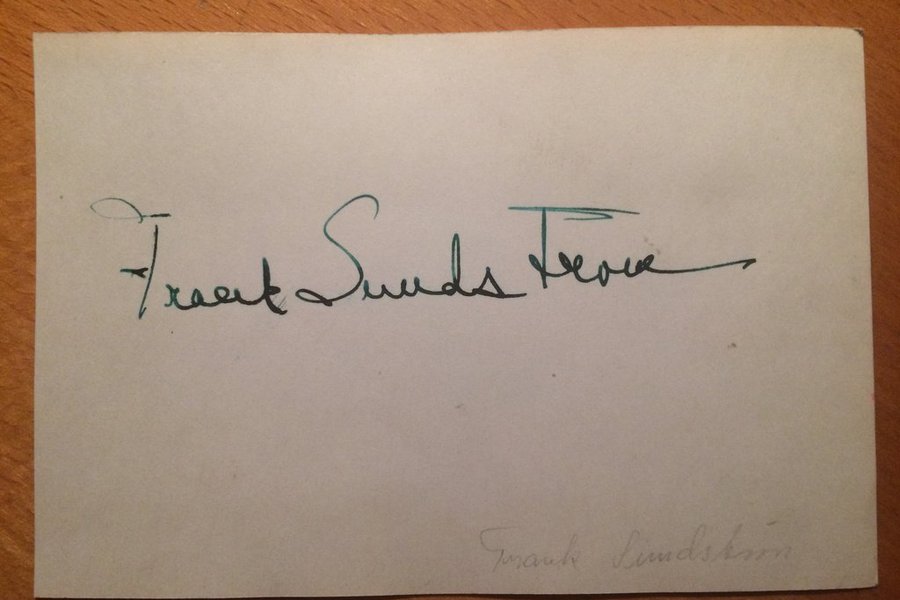 Frank Sundstrom
Frank Sundström